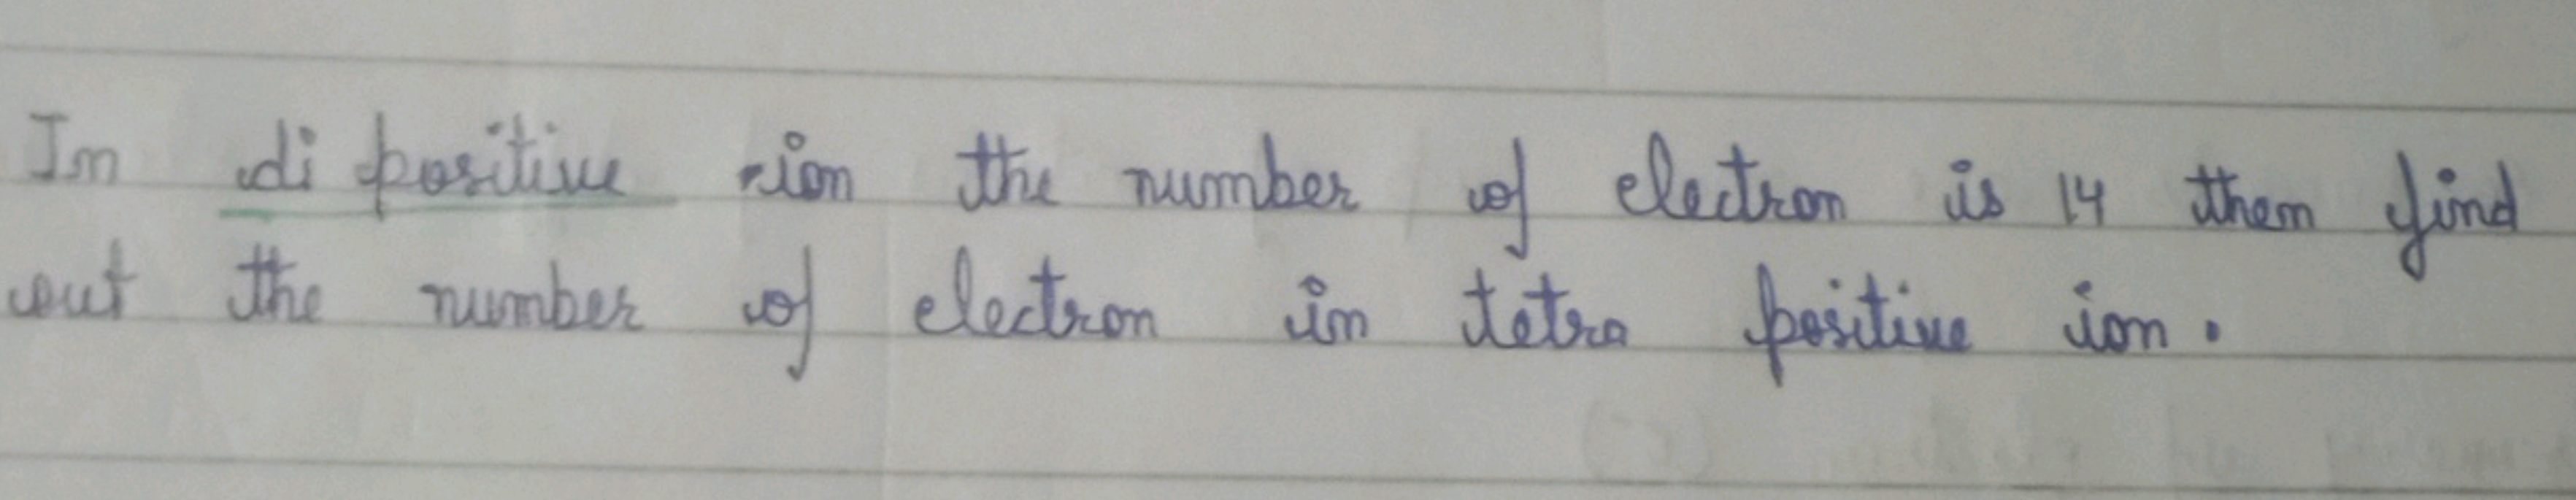 In di positive ion the number of electron is 14 then find
out the number of electron in tetra positive ion.